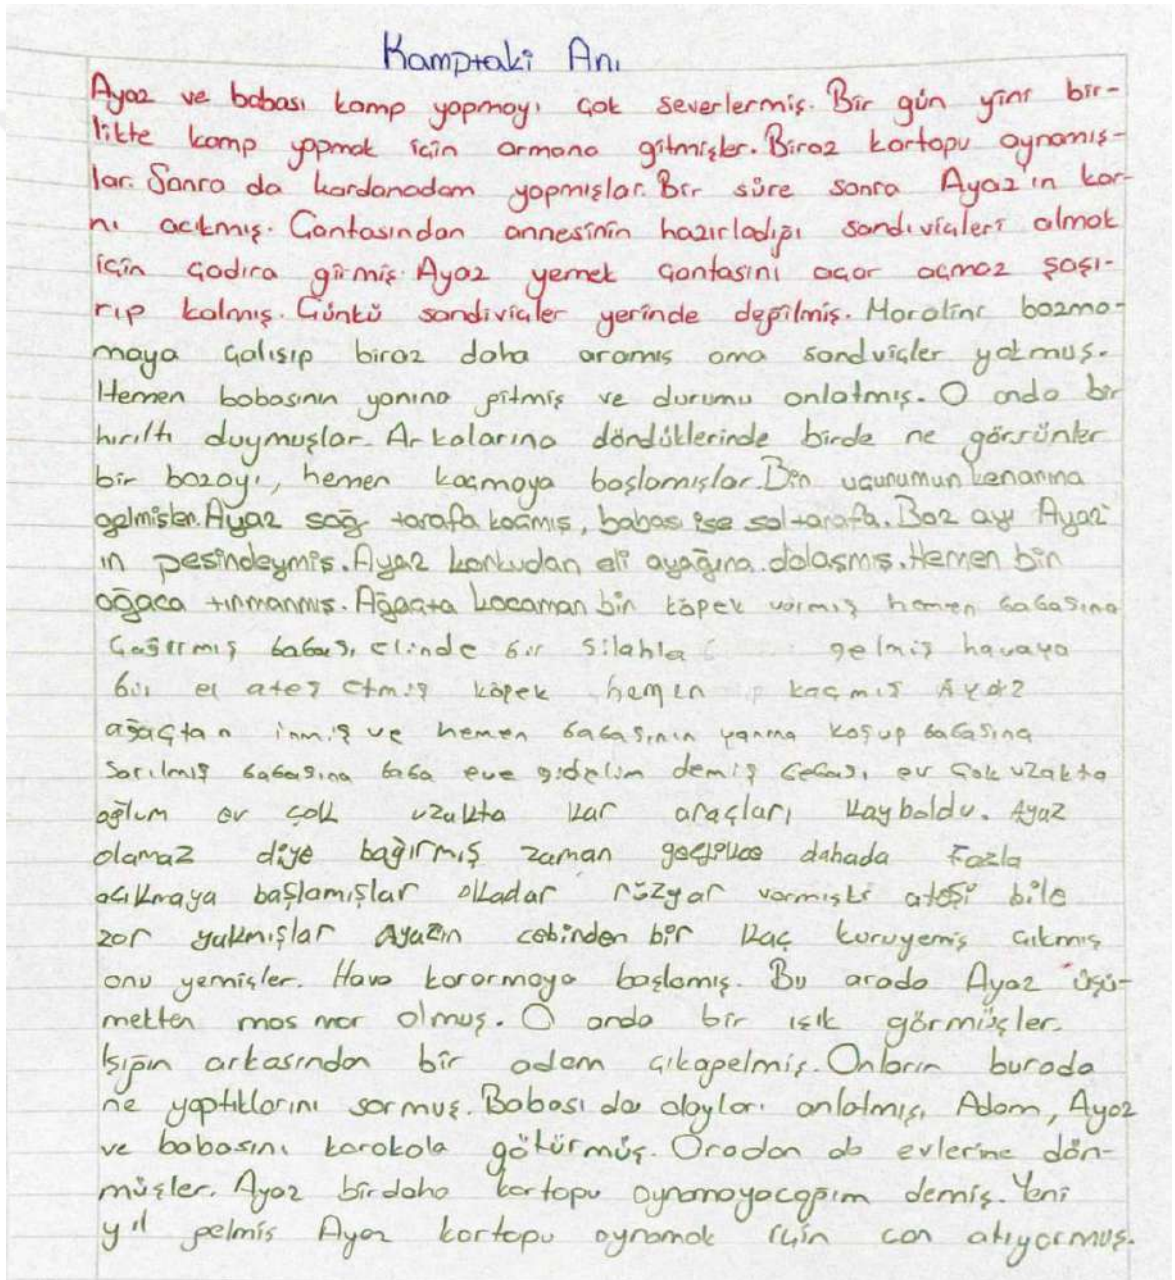 Kamptaki Anı
Ayaz ve babası kamp yapmayı çok severlermiş. Bir gün yini bir-
likte kamp yapmak için ormana gitmişler. Biraz kartopu oynamış-
lar. Sonra da kardanadam yapmışlar. Bir süre sonra Ayaz'ın kar-
nı acıkmış. Çantasından annesinin hazırladığı sandıviçleri almak
için çadıra girmiş. Ayaz yemek çantasını açar açmaz şaşı-
rıp kalmış. Çünkü sandiviçler yerinde değilmiş. Moralini bozma-
maya çalışıp biraz daha aramış ama sandviçler yokmuş.
Hemen babasının yanına gitmiş ve durumu anlatmış. O anda bir
hırıltı duymuşlar. Arkalarına döndüklerinde birde ne görsünler
bir bozayı, hemen kaçmaya başlamışlar. Bir uçurumun kenarına
gelmişler. Ayaz sağ tarafa kaçmış, babası ise sol tarafa. Boz ayı Ayaz'
ın peşindeymiş. Ayaz korkudan eli ayağına dolaşmış. Hemen bir
ağaca tırmanmış. Ağaçta kocaman bir köpek varmış hemen babasına
Çağırmış babası elinde bir silahla gelmiş havaya
bir el ateş etmiş köpek hemen kaçmış Ayaz
ağaçtan inmiş ve hemen babasının yanına koşup babasına
Sarılmış babasına baba eve gidelim demiş babası ev çok uzakta
oğlum ev çok uzakta kar araçları kayboldu. Ayaz
olamaz diye bağırmış zaman dahada Fazla
acıkmaya başlamışlar okadar rüzgar varmışki ateşi bile
zor yakmışlar Ayazın cebinden bir kaç kuruyemiş çıkmış
onu yemişler. Hava kararmaya başlamış. Bu arada Ayaz üşü-
mekten mos mor olmuş. O anda bir ışık görmüşler.
Işığın arkasından bir adam çıkagelmiş. Onların burada
ne yaptıklarını sormuş. Babası da olayları anlatmış. Adam, Ayaz
ve babasını karakola götürmüş. Oradan da evlerine dön-
müşler. Ayaz birdaha kartopu oynamayacağım demiş. Yeni
yıl gelmiş Ayaz kartopu oynamak için can atıyormuş.